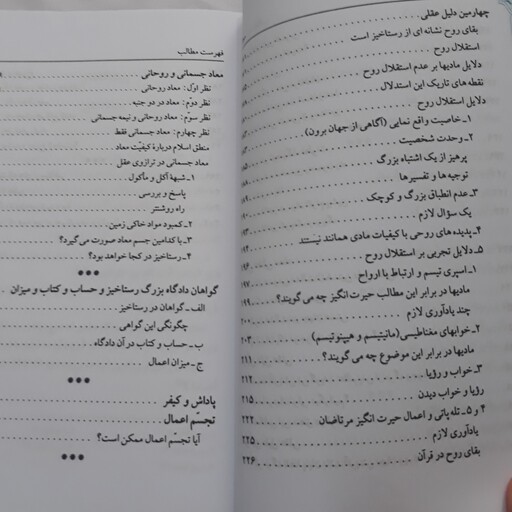 چهارمین دلیل عقلی
بقای روح نشانه ای از رستاخیز است
استقلال روح
دلایل مادیها بر عدم استقلال روح
نقطه های تاریک این استدلال
دلایل استقلال روح
۱ـ خاصیت واقع نمایی (آگاهی از جهان برون)
۲ـ وحدت شخصیت
پرهیز از یک اشتباه بزرگ
توجیه ها و تفسیرها
۳ـ عدم انطباق بزرگ و کوچک
یک سؤال لازم
۴ـ پدیده های روحی با کیفیات مادی همانند نیستند
۵ـ دلائل تجربی بر استقلال روح ۱۹۶
۱ـ اسپری تیسم و ارتباط با ارواح ۱۹۷
مادیها در برابر این مطالب حیرت انگیز چه می گویند؟ ۱۹۹
چند یادآوری لازم ۲۰۰
۲ـ خوابهای مغناطیسی (مانیتیسم و هیپنوتیسم) ۲۰۳
مادیها در برابر این موضوع چه می گویند؟ ۲۱۱
۳ـ خواب و رؤیا ۲۱۲
رؤیا و خواب دیدن ۲۱۵
۴ و ۵ـ تله پاتی و اعمال حیرت انگیز مرتاضان ۲۲۴
یادآوری لازم ۲۲۵
بقای روح در قرآن ۲۲۶
فهرست مطالب
معاد جسمانی و روحانی
نظر اوّل: معاد روحانی
نظر دوّم: معاد در دو جنبه
نظر سوّم: معاد روحانی و نیمه جسمانی
نظر چهارم: معاد جسمانی فقط
منطق اسلام درباره کیفیّت معاد
معاد جسمانی در ترازوی عقل
۱ـ شبههٔ آکل و مأکول
پاسخ و بررسی
راه روشنتر
۲ـ کمبود مواد خاکی زمین
۳ـ با کدامین جسم معاد صورت می گیرد؟
۴ـ رستاخیز در کجا خواهد بود؟
گواهان دادگاه بزرگ رستاخیز و حساب و کتاب و میزان
الف ـ گواهان در رستاخیز
چگونگی این گواهی
ب ـ حساب و کتاب در آن دادگاه
ج ـ میزان اعمال
پاداش و کیفر
تجسّم اعمال
آیا تجسّم اعمال ممکن است؟